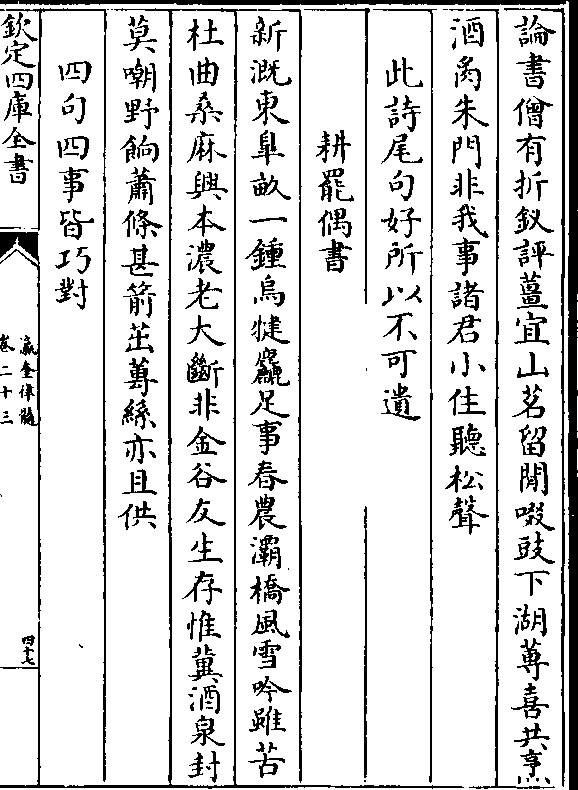 論書僧有折釵評薑宜山茗留閒啜豉下湖蓴喜共烹
酒禼朱門非我事諸君小住聽松聲
此詩尾句好所以不可遺
耕罷偶書
新溉東臯畝一鍾烏犍麤足事春農灞橋風雪吟雖苦
杜曲桑麻興本濃老大斷非金谷友生存惟冀酒泉封
莫嘲野餉蕭條甚箭茁蓴絲亦且供
四句四事皆巧對
欽定四庫全書
瀛奎律髓
卷二十三
四十七